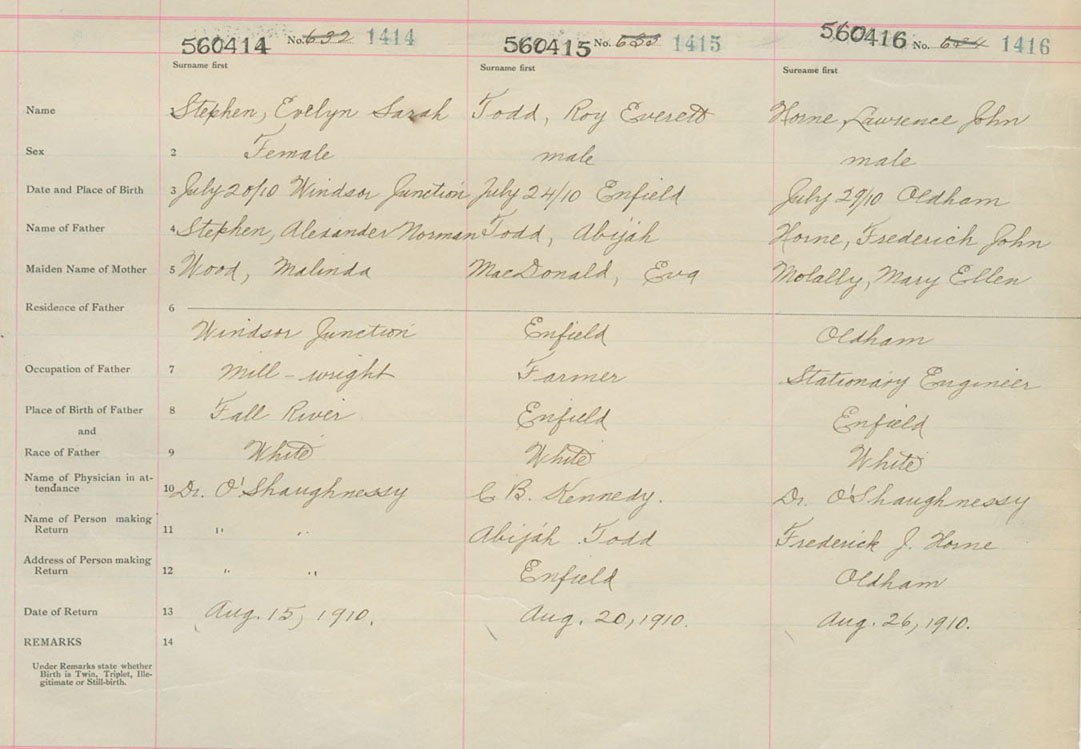 560414 No. 632 1414 560415 No. 633 1415 560416 No. 634 1416
Surname first Surname first Surname first
Name Stephen, Evelyn Sarah Todd, Roy Everett Horne, Lawrence John
Sex 2 Female male male
Date and Place of Birth 3 July 20/10 Windsor Junction July 24/10 Enfield July 29/10 Oldham
Name of Father 4 Stephen, Alexander Norman Todd, Abijah Horne, Frederich John
Maiden Name of Mother 5 Wood, Malinda MacDonald, Eva Molally, Mary Ellen
Residence of Father 6
Windsor Junction Enfield Oldham
Occupation of Father 7 Mill-wright Farmer Stationary Engineer
Place of Birth of Father 8 Fall River Enfield Enfield
and
Race of Father 9 White White White
Name of Physician in at-
tendance 10 Dr. O'Shaughnessy C B. Kennedy. Dr. O'Shaughnessy
Name of Person making
Return 11 " " Abijah Todd Frederick J. Horne
Address of Person making
Return 12 " " Enfield Oldham
Date of Return 13 Aug. 15, 1910. Aug. 20, 1910. Aug. 26, 1910.
REMARKS 14
Under Remarks state whether
Birth is Twin, Triplet, Ille-
gitimate or Still-birth.